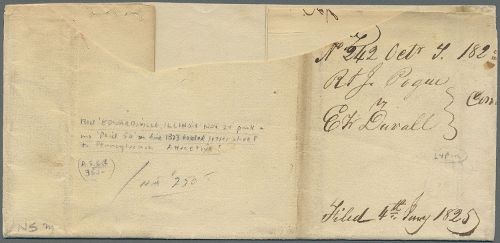 No 242 Octr T. 182
R & J. Pogue
vs
E K Duvall
Con
Filed 4th Jany 1825
Red "EDWARDSVILLE ILLINOIS NOV 24 pmk &
ms "Paid 50" on fine 1823 folded letter sheet
to Pennsylvania. ATTRACTIVE!
A.S.C.C.
NSM